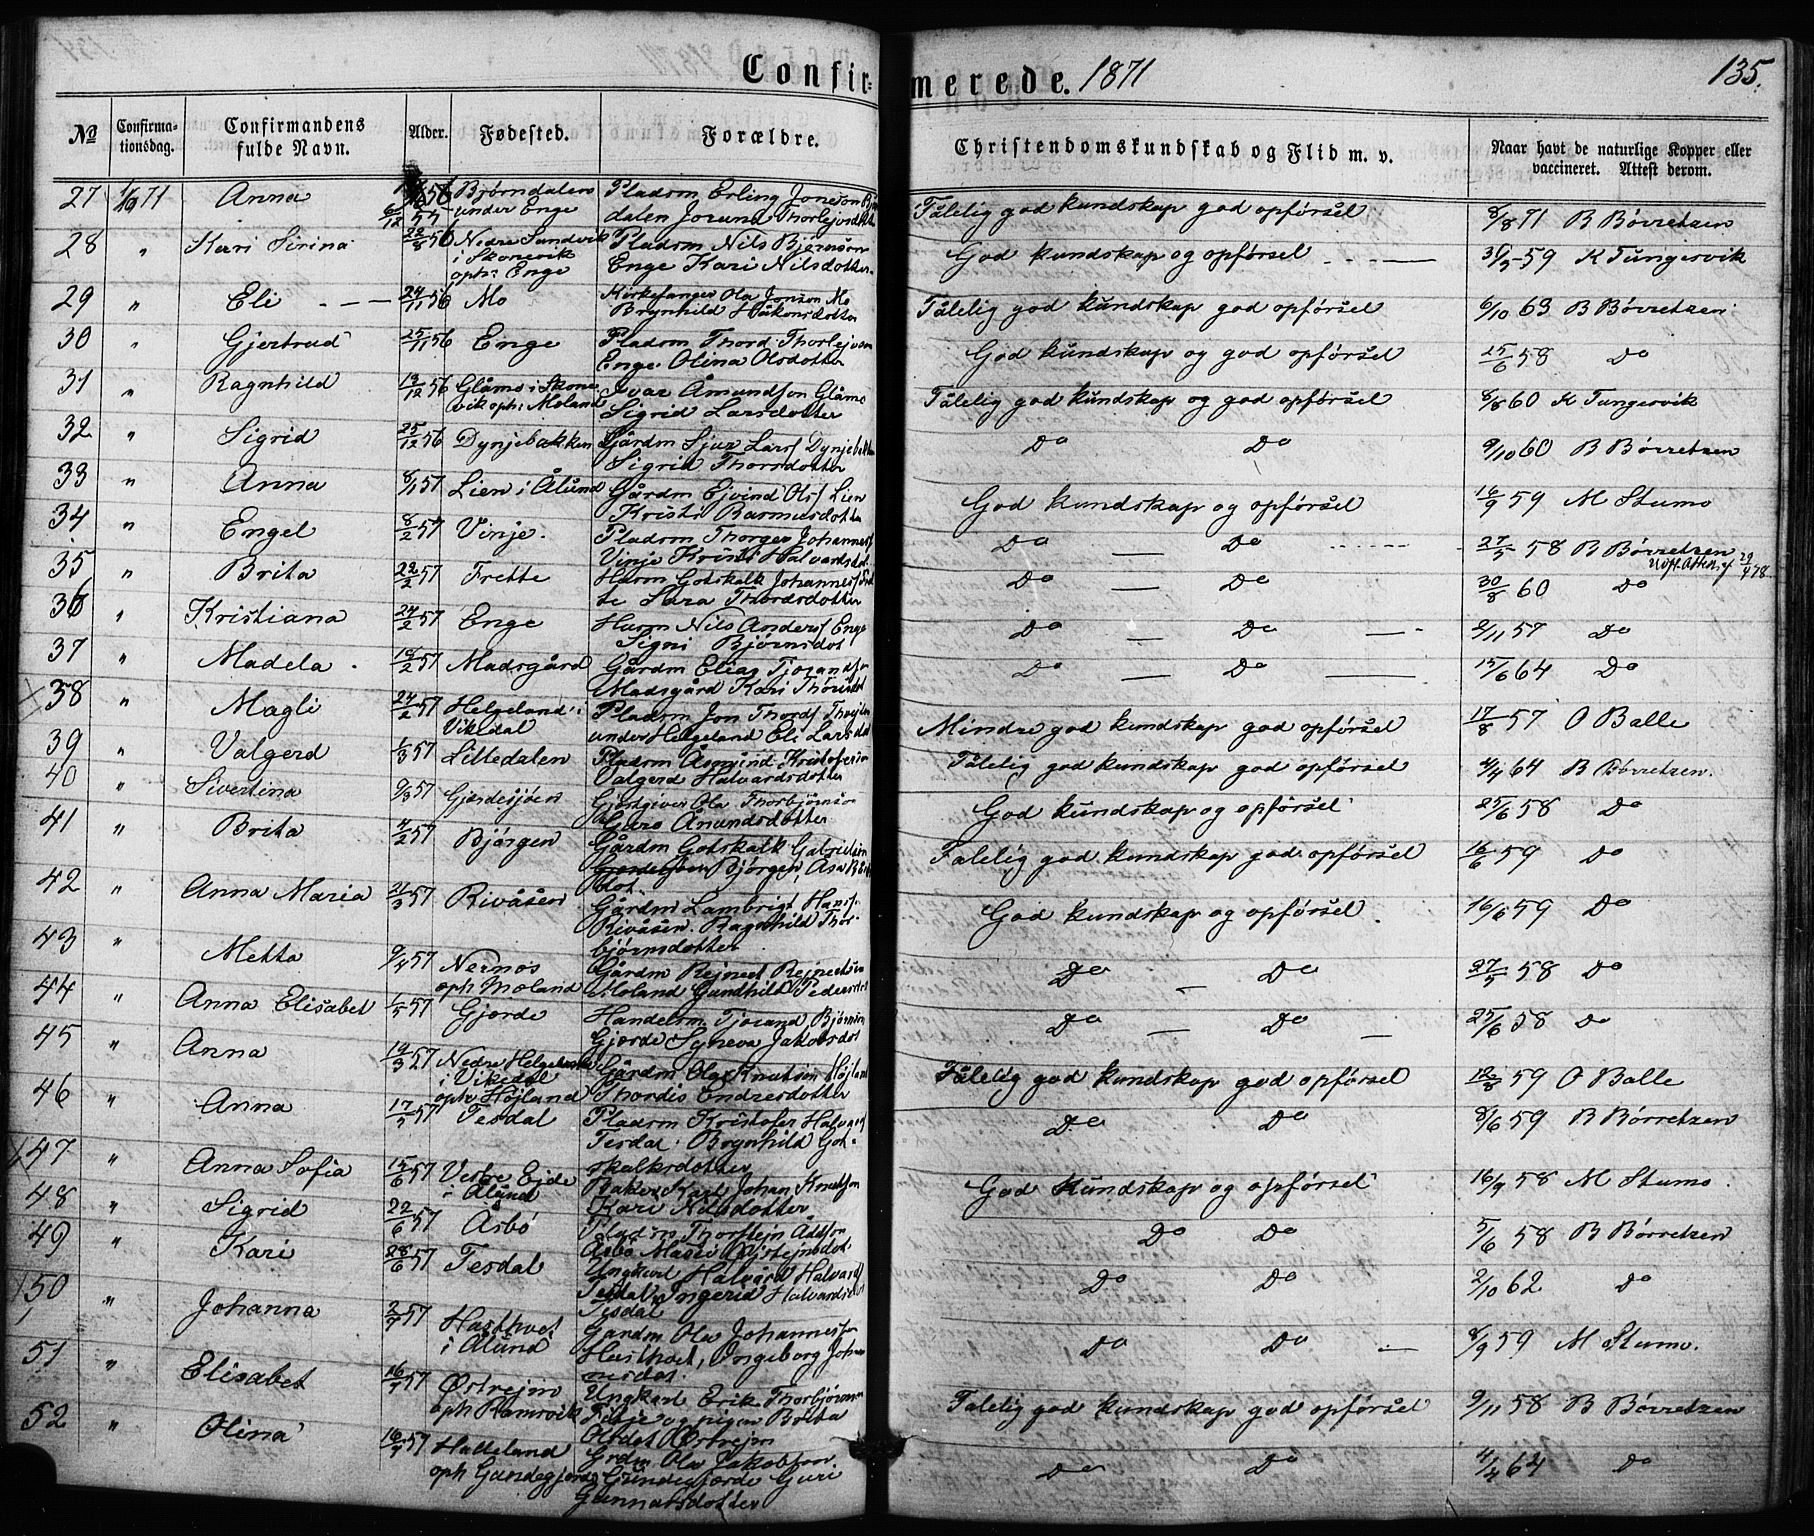 Confirmerede. 1871
135.
№ Confirmationsdag. Confirmandens fulde Navn. Alder. Fødested. Forældre. Christendomskundskab og Flid m. v. Naar havt de naturlige Kopper eller vaccineret. Attest derom.
27 1/10 71 Anna Brørndalen under Enge Pladsm Erling Joneson Tålelig god kundskap god opførsel 8/8 71 B Børretzen
28 " Kari Sirina 22/8 56 Nedre Sundvik i Skonevik oph: Enge Pladsm Nils Bjørnson Enge Kari Nilsdotter God kundskap og opførsel 59 K Tungesvik
29 " Eli 24/11 56 Mo Kirkesanger Ola Jonson Mo Brynhild Håkonsdotter Tålelig god kundskap god opførsel 6/10 63 B Børretzen
30 " Gjertrud 25/11 56 Enge Pladsm Thord Thorlejvson Enge Olina Olsdotter God kundskap og god opførsel 25/6 58 Do
31 " Ragnhild 13/12 56 Glåms i Skonevik oph: Moland Ivar Åmundson Glåms Sigrid Larsdotter Tålelig god kundskap og god opførsel 8/8 60 K Tungesvik
32 " Sigrid 25/12 56 Dynjebakken Gårdm Sjur Lars Dynjebakken Sigrid Thorsdotter Do Do 9/10 60 B Børretzen
33 " Anna 8/1 57 Lien i Ålund Gårdm Ejvind Ols Lien Kristi Rasmusdotter God kundskap og opførsel 16/9 59 M Stumo
34 " Engel 8/2 57 Vinje Pladsm Thorger Johannes Vinje Kristi Halvardsdot Do Do 27/5 58 B Børretzen
35 " Brita 22/2 57 Frette Husm Gotskalk Johannes Frette Sara Thordsdotter Do Do 30/8 60 Do
36 " Kristiana 24/2 57 Enge Husm Nils Anders Enge Signi Bjørnsdot Do Do 2/11 57 Do
37 " Madela 18/2 57 Madsgård Gårdm Elias Tjorandson Madsgård Kari Do Do 15/6 64 Do
38 " Magli 24/2 57 Helgeland i Vikedal Pladsm Jon Thords under Helgeland Eli Larsdot Mindre god kundskap god opførsel 17/8 57 O Balle
39 " Valgerd 1/3 57 Littedalen Pladsm Åsmund Kristoferson Valgerd Halvardsdotter Tålelig god kundskap god opførsel 4/4 64 B Børretzen
40 " Sivertina 9/3 57 Gjerdesjøen Gjestgiver Ola Thorbjørnson Guro Anundsdotter God kundskap og opførsel 25/6 58 Do
41 " Brita 4/2 57 Bjørgen Gårdm Gotskalk Gabrielsøn Bjørgen, Åsa Tålelig god kundskap god opførsel 16/6 59 Do
42 " Anna Maria 21/3 57 Rivåsen Gårdm Lambrigt Hans Rivåsen Ragnhild Thorbjørnsdotter God kundskap og opførsel 16/6 59 Do
43 " Metta 9/4 57 Nernos oph Moland Gårdm Rejnert Rejnertson Moland Gundhild Pedersdot Do Do 27/5 58 Do
44 " Anna Elisabet 1/5 57 Gjerde Handelsm Tjorand Bjørnson Gjerde Syneva Jakobsdot Do Do 25/6 58 Do
45 " Anna 14/3 57 Nedre Helgeland i Vikedal oph Højland Gårdm Ola Knutson Højland Thordis Endresdotter Tålelig god kundskap god opførsel 12/8 59 O Balle
46 " Anna 17/5 57 Tesdal Pladsm Kristofer Halvards Tesdal Brynhild Gotskalksdotter Do Do 8/6 59 B Børretzen
47 " Anna Sofia 15/6 57 Vestre Ejde i Ålund Baker Karl Johan Knutson Kari Nilsdotter God kundskap og opførsel 16/9 58 M Stumo
48 " Sigrid 22/6 57 Åsbø Pladsm Thorstejn Åsbø Do Do 5/6 58 B Børretzen
49 " Kari 28/6 57 Tesdal Ungkarl Halvard Halvards Tesdal Ingerid Halvardsdot Tesdal Do Do 2/10 62 Do
50 " Johanna 2/7 57 Hasthvet i Ålund Gårdm Ola Johanneson Hasthvet, Ingeborg Johannesdot. Do Do 8/9 59 M Stumo.
51 " Elisabet 16/7 57 Østrejm oph Ramsvik Ungkarl Erik Thorbjørnson og pigen Brita Olsdot Østrejm Tålelig god kundskap god opførsel 9/11 58 B Børretzen
52 " Olina 16/7 57 Halleland oph Gundegjerde Grdm Ola Jakobson Gundegjerde Guri Gunnarsdotter Do Do 4/4 64 Do